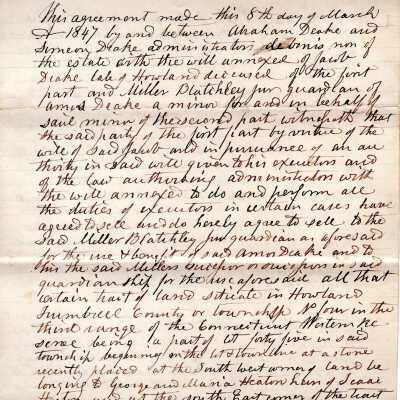 This agreement made this 8th day of March
A 1847 by and between Abraham Deake and
Simeon Deake administrators debonis non of
the estate with the will annexed of Jacob
Deake late of Howland deceased of the first
part and Miller Blatchley jur guardian of
Amos Deake a minor for and in behalf of
said minor of the second part witnesseth that
the said party of the first part by virtue of the
will of said Jacob and in pursuance of an au
thority in said will given to his executors and
of the law authorising administrators with
the will annexed to do and perform all
the duties of executors in certain cases have
agreed to sell and do hereby agree to sell to the
said Miller Blatchley jur guardian as aforesaid
for the use & benefit of said Amos Deake and to
his the said Millers succesor or succesors in said
guardian ship for the use aforesaid all that
certain tract of land situate in Howland
Trumbull County or township No four in the
third range of the Connecticut Western Re
serve being a part of lot forty five in said
township beginning on the lot line at a stone
recently placed at the South west corner of land be
longing to George and Maria Heaton heirs of Isaac
Heaton at the South East corner of the tract